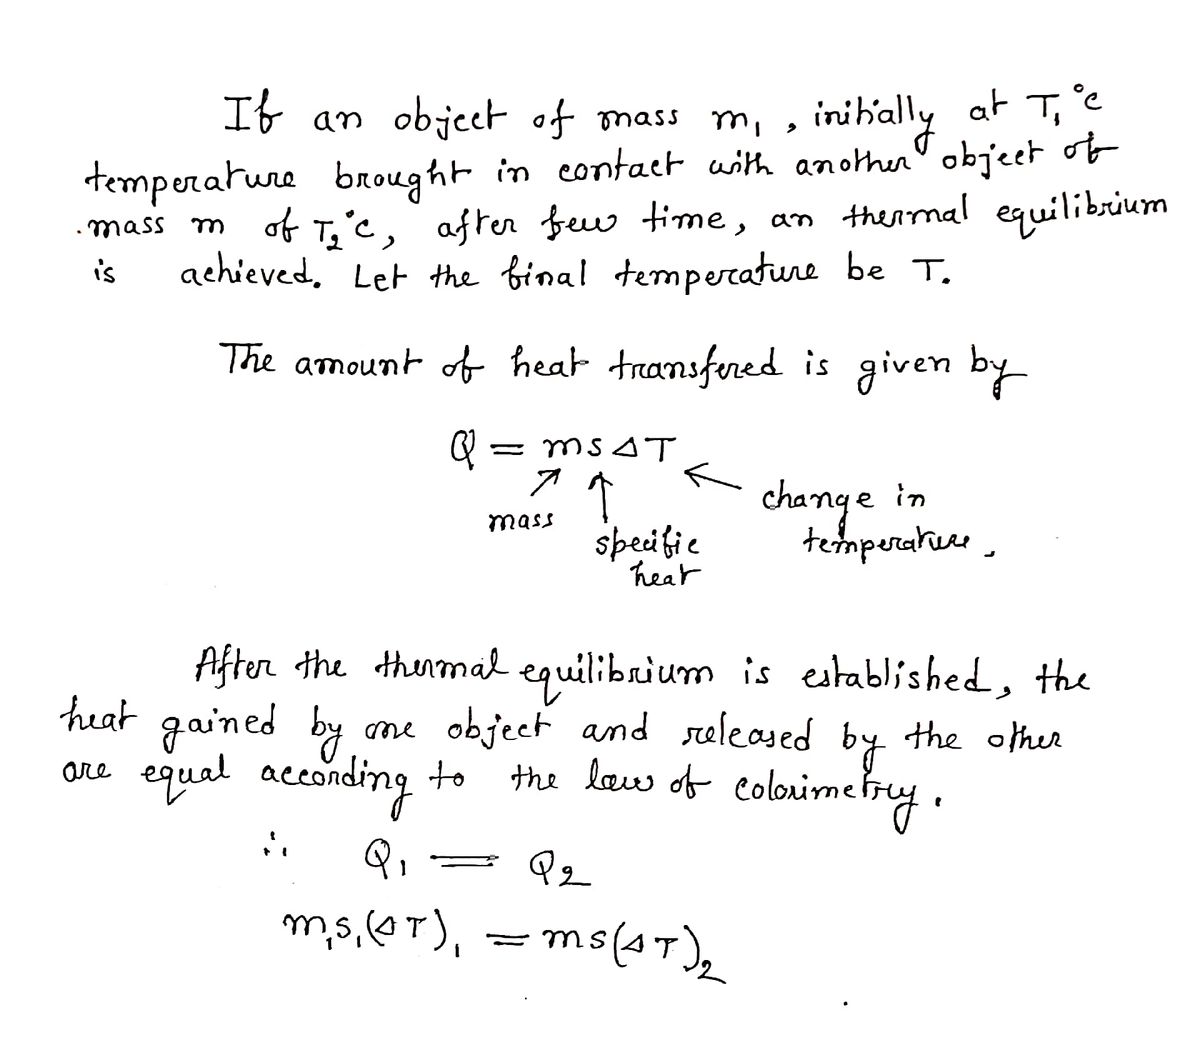 If an object of mass m₁, initially at T₁°C
temperature brought in contact with another object of
mass m of T₂°C, after few time, an thermal equilibrium
is achieved. Let the final temperature be T.
The amount of heat transfered is given by
Q = msΔT
mass
specific
heat
change in
temperature.
After the thermal equilibrium is established, the
heat gained by one object and released by the other
are equal according to the law of colorimetry.
∴ Q₁ = Q₂
m₁s₁(ΔT)₁ = ms(ΔT)₂